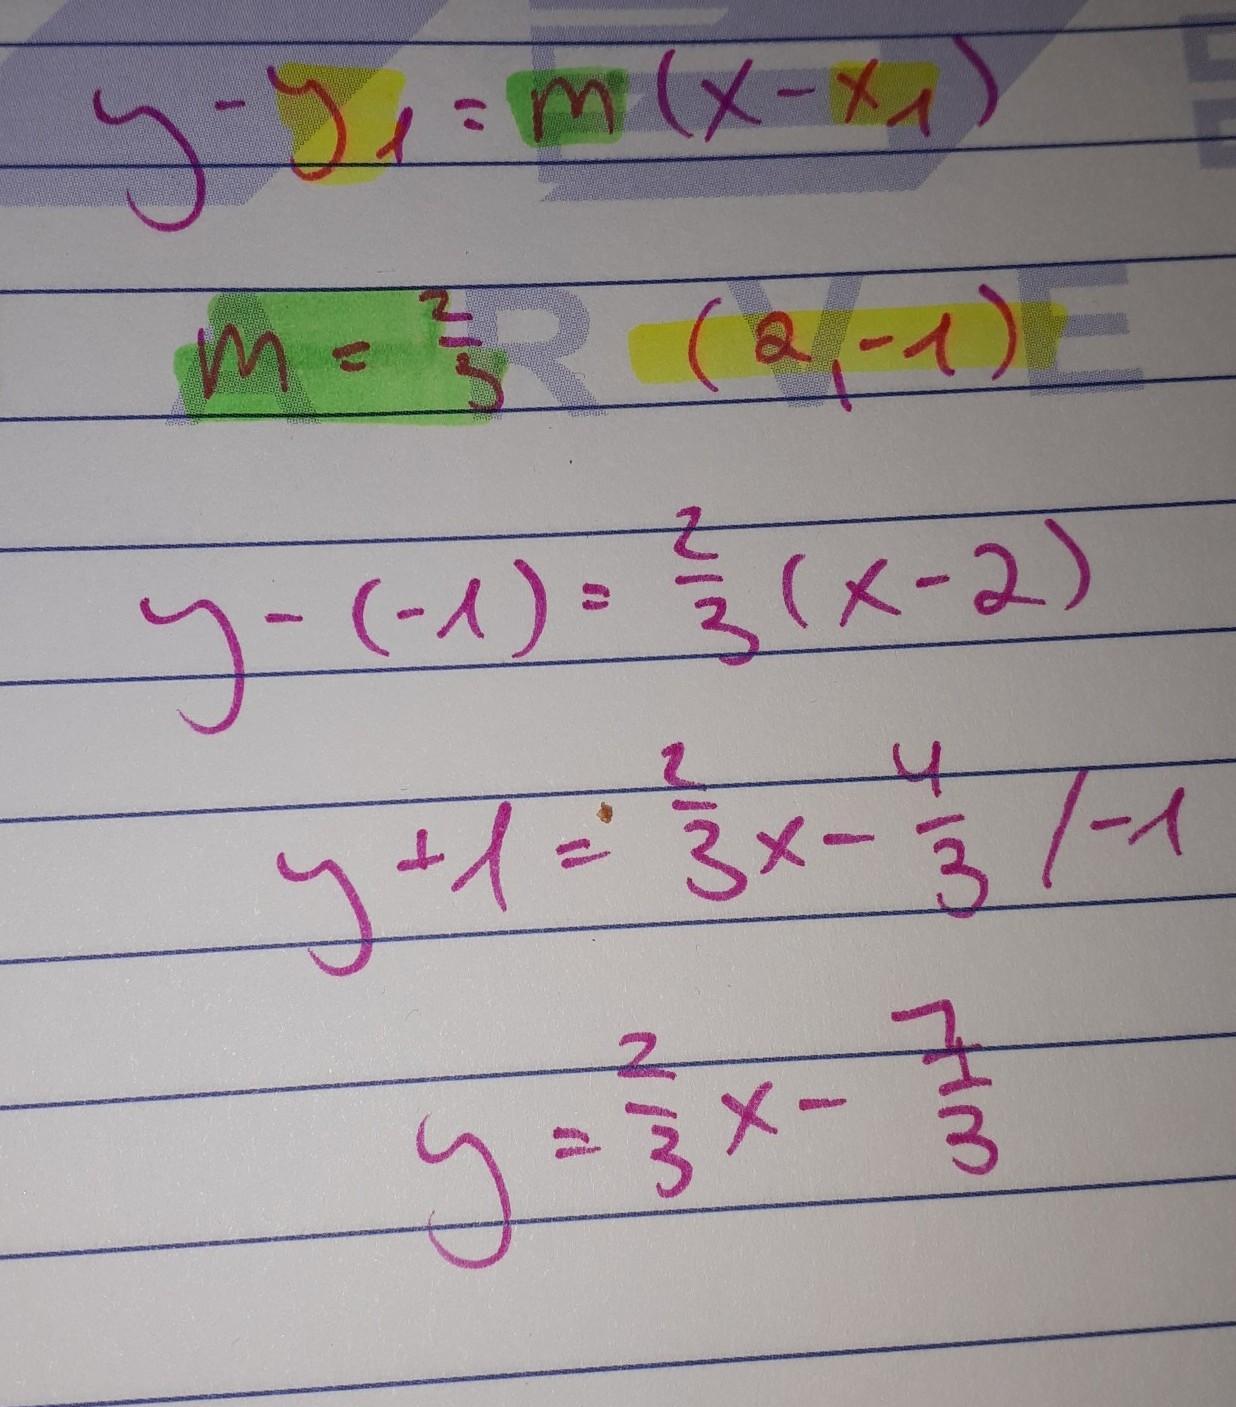 y - y₁ = m (x - x₁)
m = 2/3 (2, -1)
y - (-1) = 2/3 (x - 2)
y + 1 = 2/3 x - 4/3 / -1
y = 2/3 x - 7/3